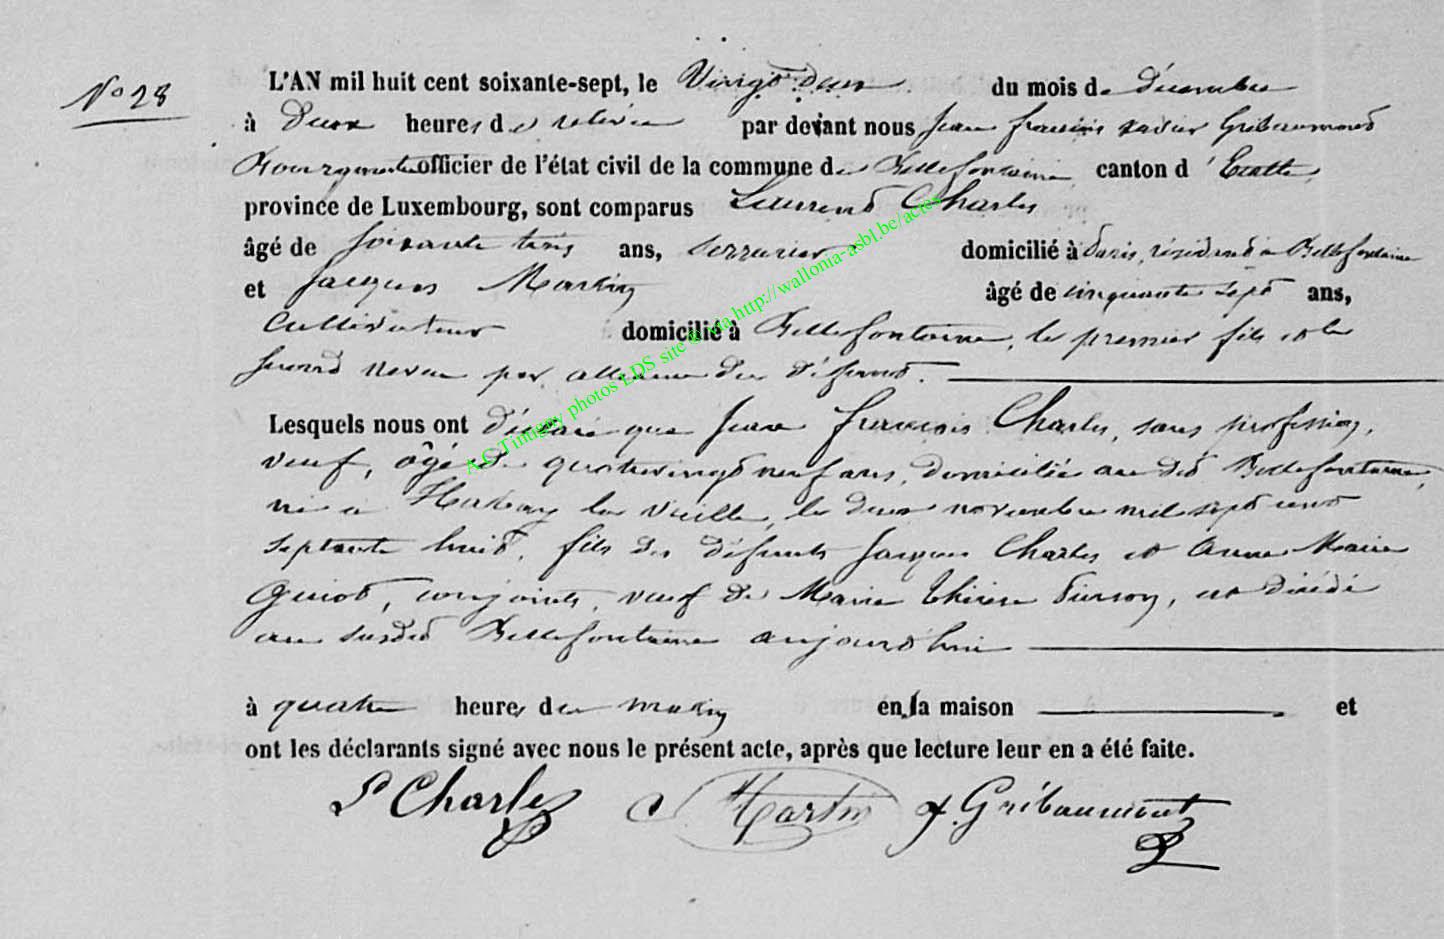 No 28
L'AN mil huit cent soixante-sept, le Vingt deux du mois de décembre
à Deux heures de relevée par devant nous Jean françois xavier Gribaumont
Bourgmestre officier de l'état civil de la commune de Bellefontaine canton d'Etalle,
province de Luxembourg, sont comparus Laurent Charles
âgé de soixante trois ans, serrurier domicilié à Paris, résidant à Bellefontaine
et Jacques Martin âgé de cinquante sept ans,
Cultivateur domicilié à Bellefontaine, le premier fils et le
second neveu par alliance du défunt.
Lesquels nous ont déclaré que Jean françois Charles, sans profession,
veuf, âgé de quatrevingt neuf ans, domicilié au dit Bellefontaine,
né à Habay la vieille, le deux novembre mil sept cent
septante huit, fils des défunts Jacques Charles et Anne Marie
Guiot, conjoints, veuf de Marie thérèse Pierson, est décédé
au susdit Bellefontaine aujourd'hui
à quatre heures du matin en sa maison et
ont les déclarants signé avec nous le présent acte, après que lecture leur en a été faite.
L Charles J Martin f. Gribaumont
A.C Tintigny photos LDS site via http://wallonia-asbl.be/actes